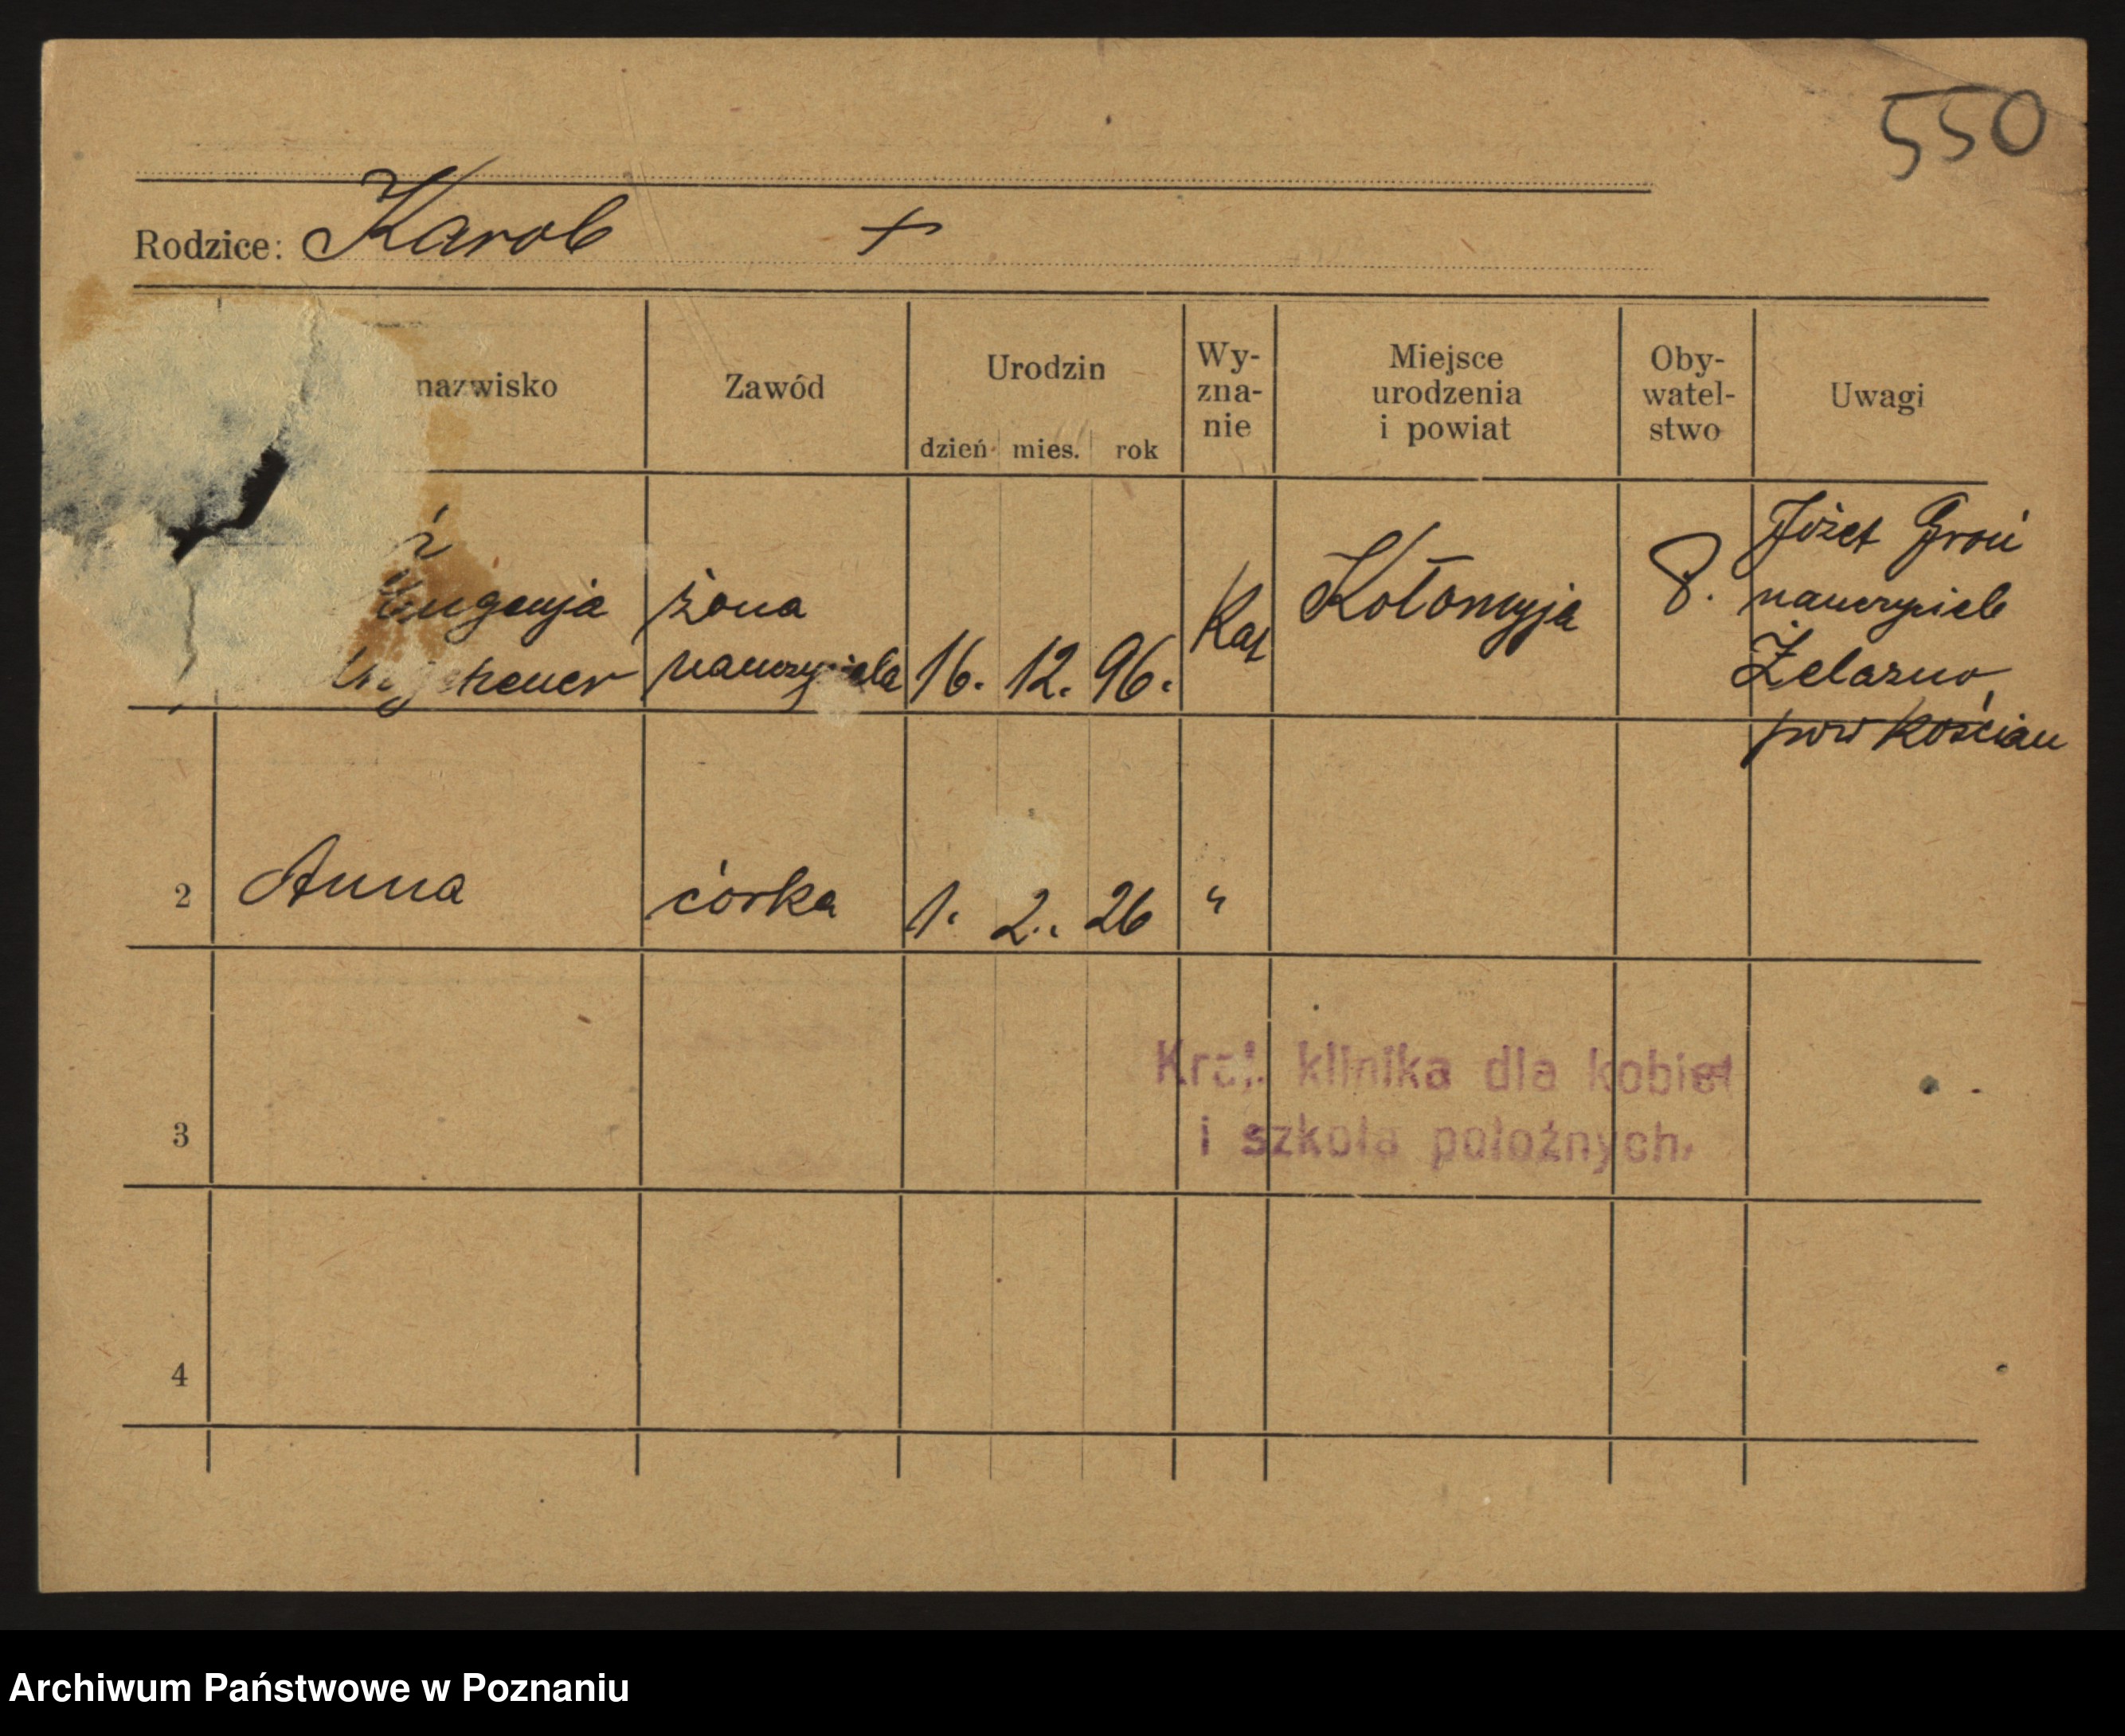 550
Rodzice: Karol +
nazwisko
Zawód
Urodzin
dzień mies. rok
Wy-
zna-
nie
Miejsce
urodzenia
i powiat
Oby-
watel-
stwo
Uwagi
ń
Eugenja
żona
nauczyciela
16. 12. 96.
Kat
Kołomyja
P.
Józef Groń
nauczyciel
Żelazno,
pow Kościan
2 Anna córka 1. 2. 26 "
Kraj. klinika dla kobiet
i szkoła położnych.
3
4
Archiwum Państwowe w Poznaniu